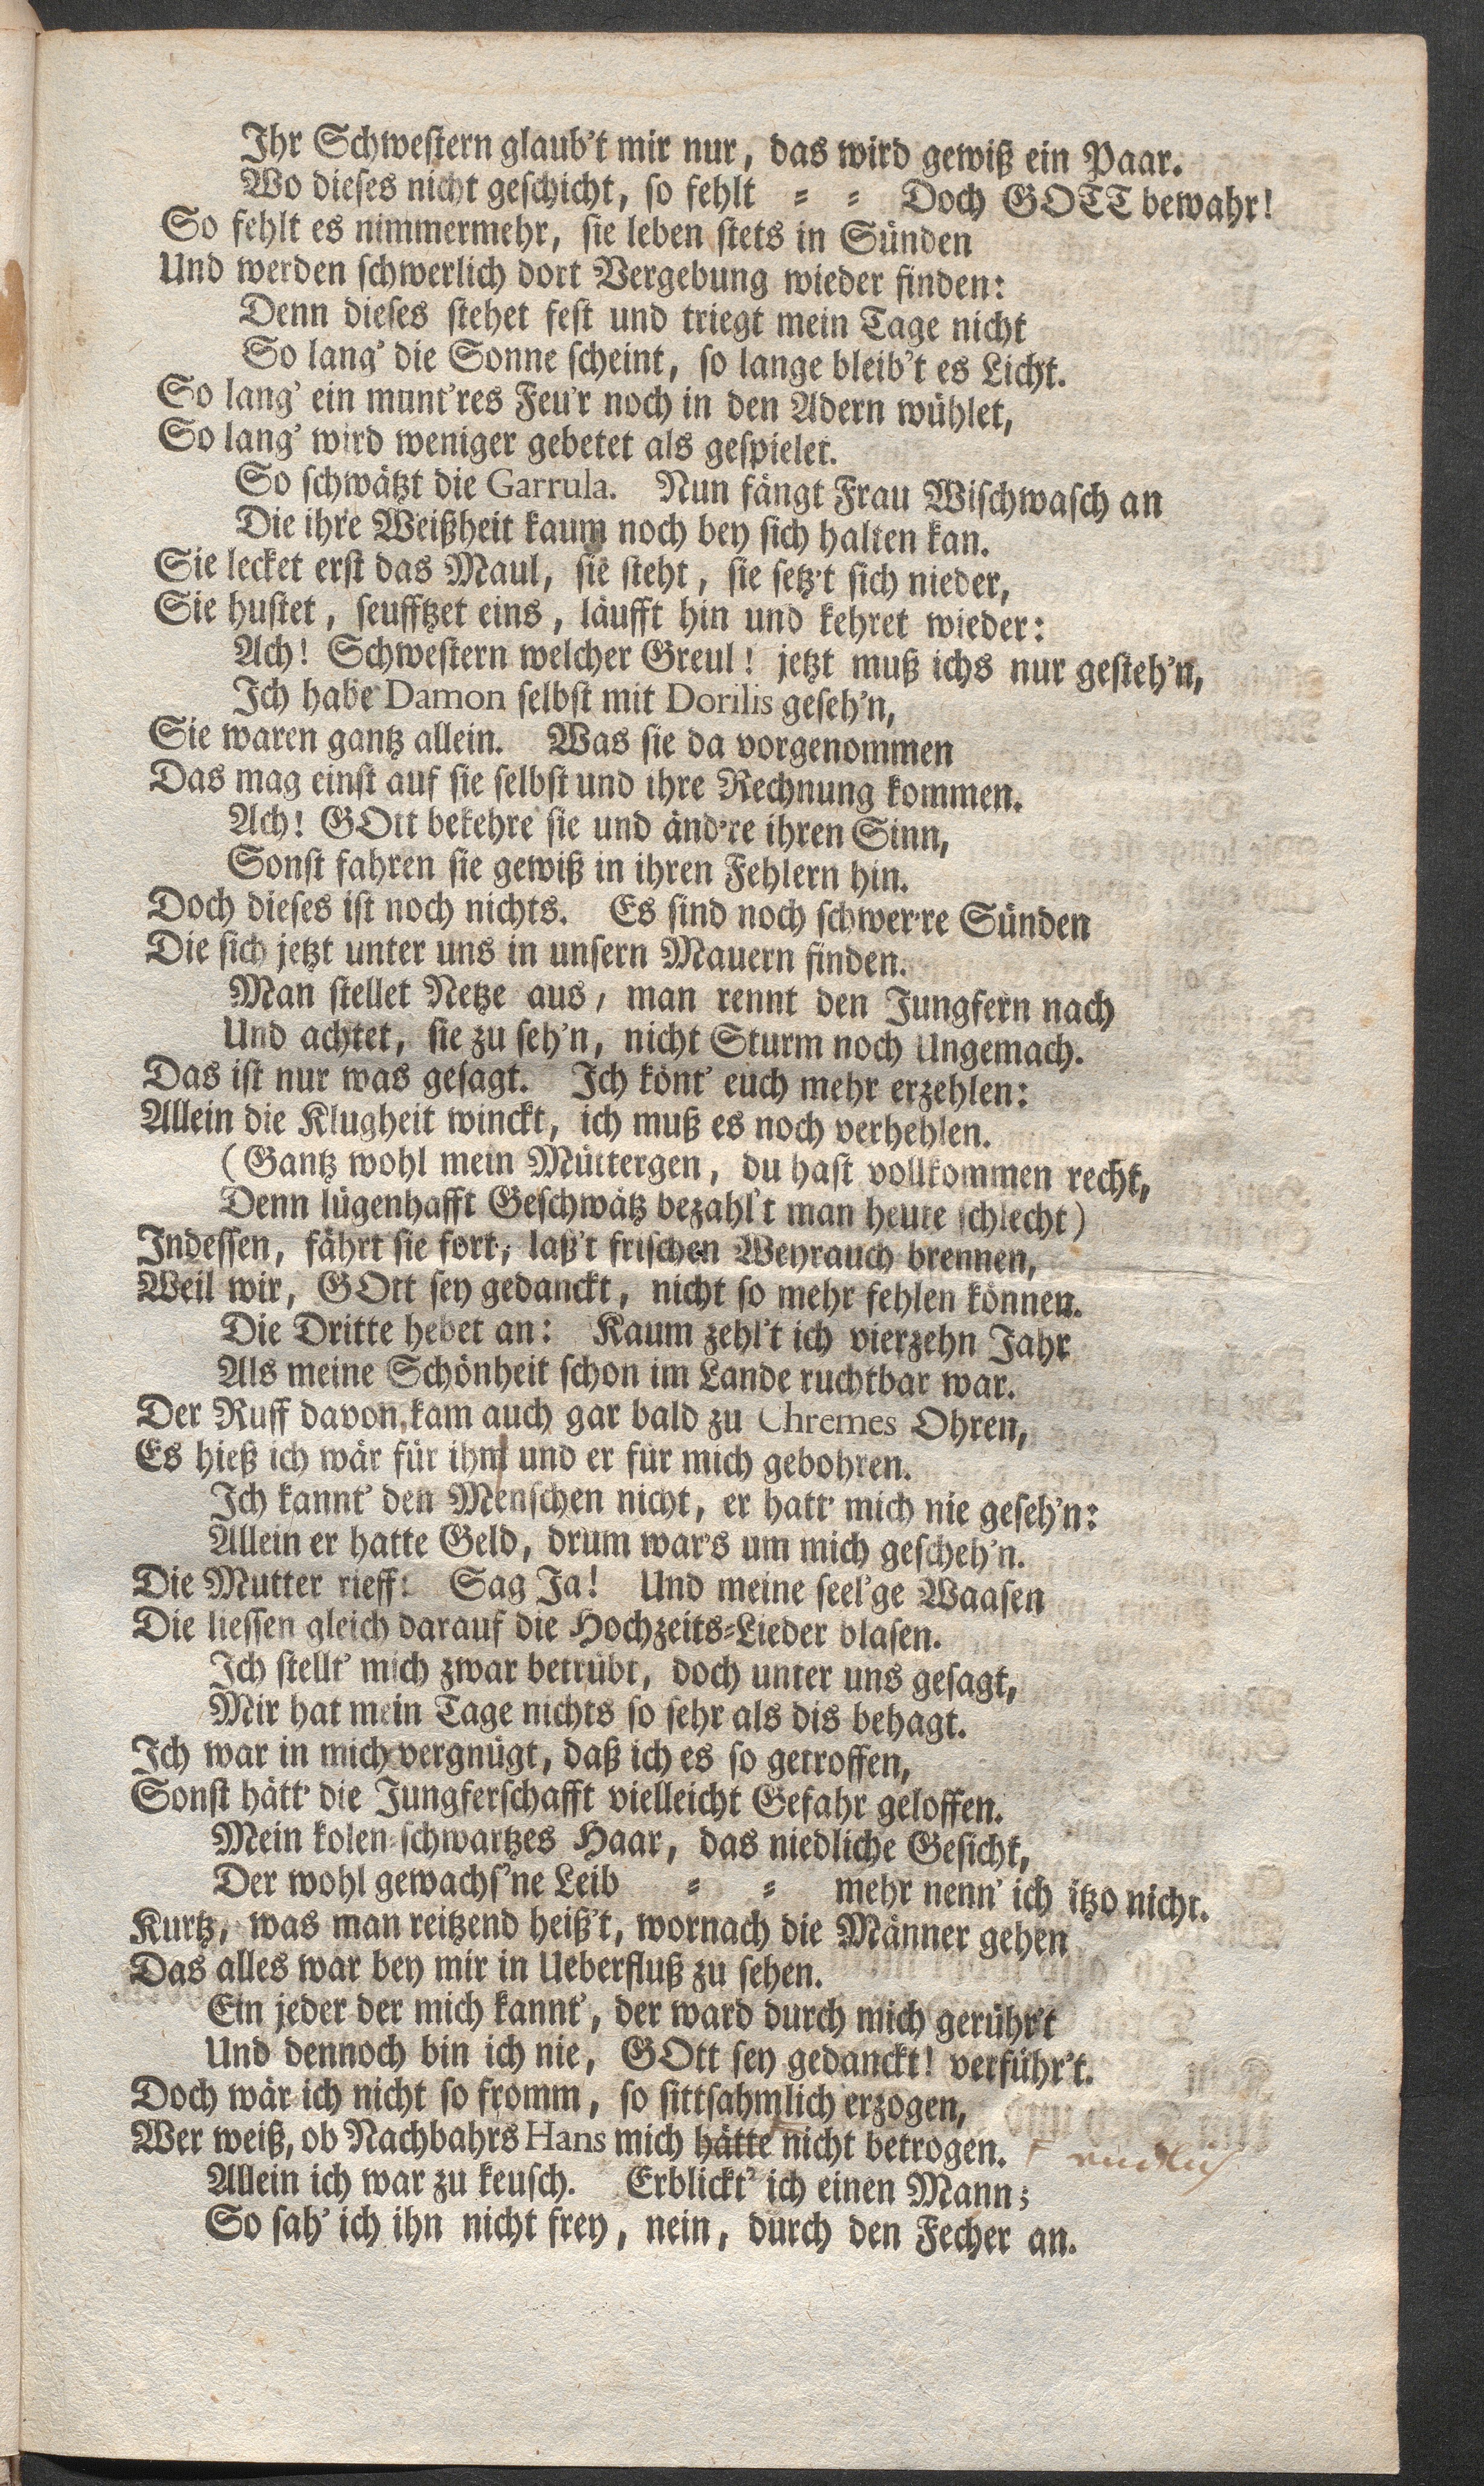 Ihr Schwestern glaub't mir nur, das wird gewiß ein Paar.
Wo dieses nicht geschicht, so fehlt = = Doch GOTT bewahr!
So fehlt es nimmermehr, sie leben stets in Sünden
Und werden schwerlich dort Vergebung wieder finden:
Denn dieses stehet fest und triegt mein Tage nicht
So lang' die Sonne scheint, so lange bleib't es Licht.
So lang' ein munt'res Feu'r noch in den Adern wühlet,
So lang' wird weniger gebetet als gespielet.
So schwätzt die Garrula. Nun fängt Frau Wischwasch an
Die ihre Weißheit kaum noch bey sich halten kan.
Sie lecket erst das Maul, sie steht, sie setz't sich nieder,
Sie hustet, seufftzet eins, läufft hin und kehret wieder:
Ach! Schwestern welcher Greul! jetzt muß ichs nur gesteh'n,
Ich habe Damon selbst mit Dorilis geseh'n,
Sie waren gantz allein. Was sie da vorgenommen
Das mag einst auf sie selbst und ihre Rechnung kommen.
Ach! GOtt bekehre sie und änd're ihren Sinn,
Sonst fahren sie gewiß in ihren Fehlern hin.
Doch dieses ist noch nichts. Es sind noch schwer're Sünden
Die sich jetzt unter uns in unsern Mauern finden.
Man stellet Netze aus, man rennt den Jungfern nach
Und achtet, sie zu seh'n, nicht Sturm noch Ungemach.
Das ist nur was gesagt. Ich könt' euch mehr erzehlen:
Allein die Klugheit winckt, ich muß es noch verhehlen.
(Gantz wohl mein Müttergen, du hast vollkommen recht,
Denn lügenhafft Geschwätz bezahl't man heute schlecht)
Indessen, fährt sie fort, laß't frischen Weyrauch brennen,
Weil wir, GOtt sey gedanckt, nicht so mehr fehlen können.
Die Dritte hebet an: Kaum zehl't ich vierzehn Jahr
Als meine Schönheit schon im Lande ruchtbar war.
Der Ruff davon kam auch gar bald zu Chremes Ohren,
Es hieß ich wär für ihm und er für mich gebohren.
Ich kannt' den Menschen nicht, er hatt' mich nie geseh'n:
Allein er hatte Geld, drum war's um mich gescheh'n.
Die Mutter rieff: Sag Ja! Und meine seel'ge Waasen
Die liessen gleich darauf die Hochzeits-Lieder blasen.
Ich stellt' mich zwar betrübt, doch unter uns gesagt,
Mir hat mein Tage nichts so sehr als dis behagt.
Ich war in mich vergnügt, daß ich es so getroffen,
Sonst hätt' die Jungferschafft vielleicht Gefahr geloffen.
Mein kolen-schwartzes Haar, das niedliche Gesicht,
Der wohl gewachs'ne Leib = = mehr nenn' ich itzo nicht.
Kurtz, was man reitzend heiß't, wornach die Männer gehen
Das alles war bey mir in Ueberfluß zu sehen.
Ein jeder der mich kannt', der ward durch mich gerühr't
Und dennoch bin ich nie, GOtt sey gedanckt! verführ't.
Doch wär ich nicht so fromm, so sittsahmlich erzogen,
Wer weiß, ob Nachbahrs Hans mich hätte nicht betrogen.
Allein ich war zu keusch. Erblickt' ich einen Mann;
So sah' ich ihn nicht frey, nein, durch den Fecher an.